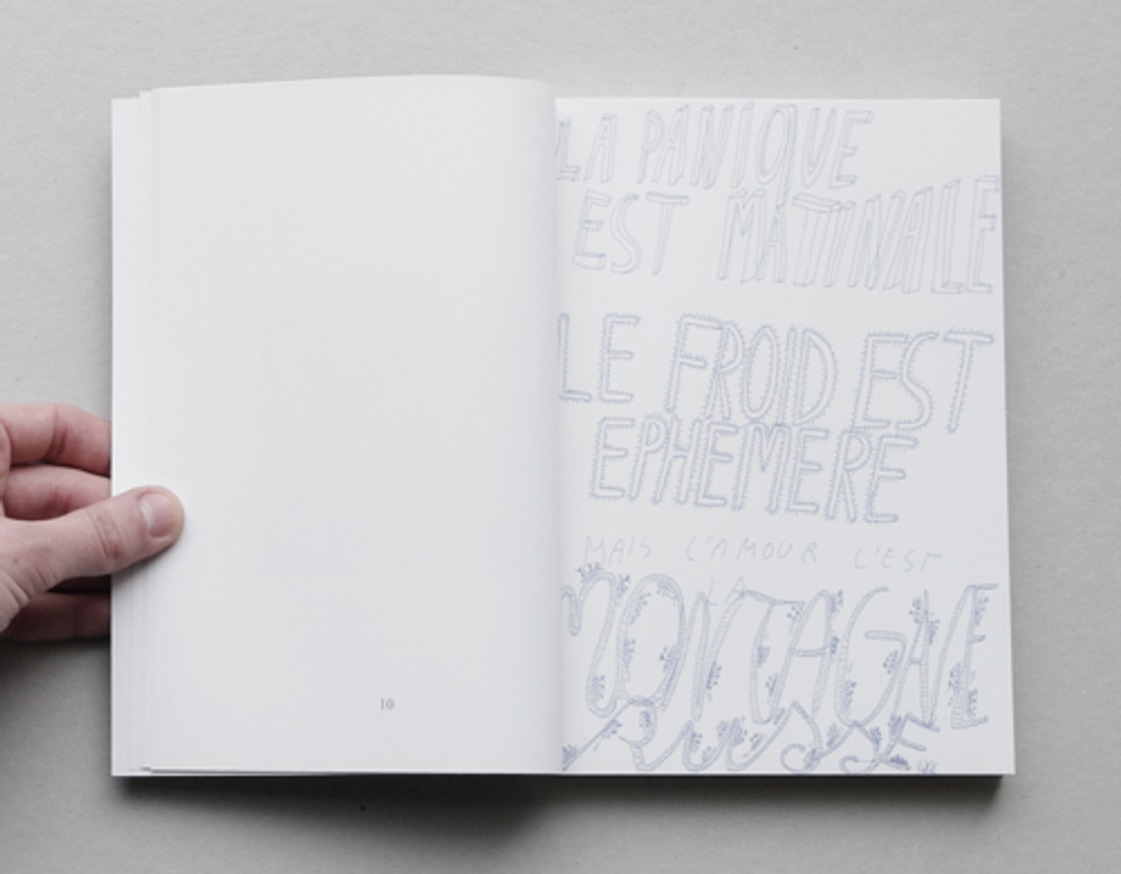 10
LA PANIQUE
EST MATINALE
LE FROID EST
EPHEMERE
MAIS L'AMOUR C'EST
LA
MONTAGNE
russe